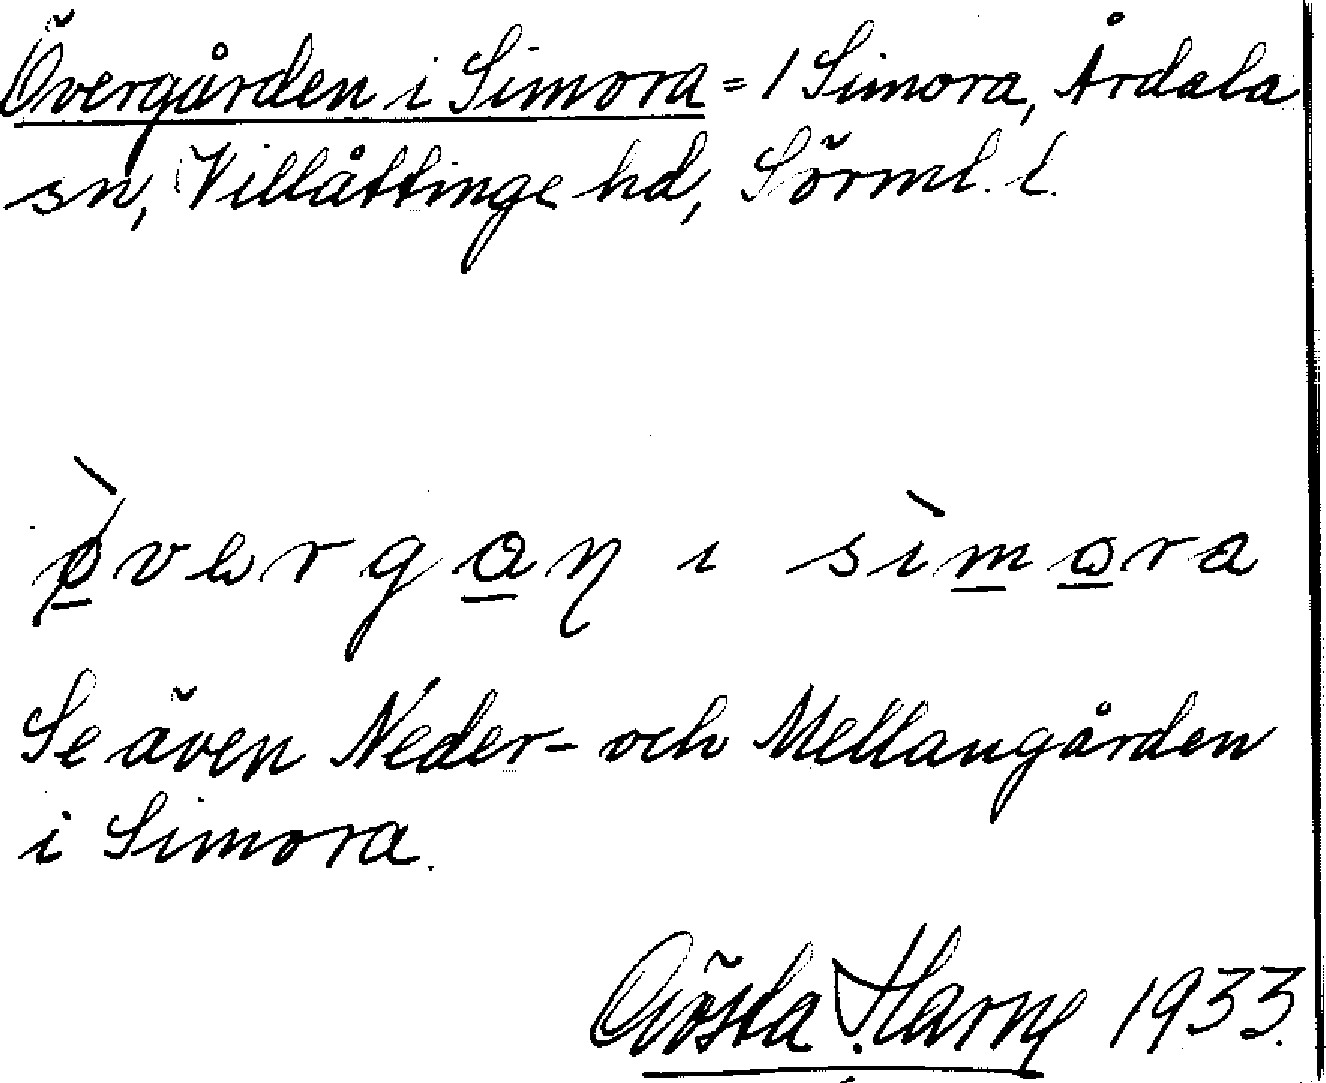 Övergården i Simora = 1 Simora, Årdala
sn, Villåttinge hd, Sörml. l.
i simora
Se även Neder- och Mellangården
i Simora.
Gösta 1933.